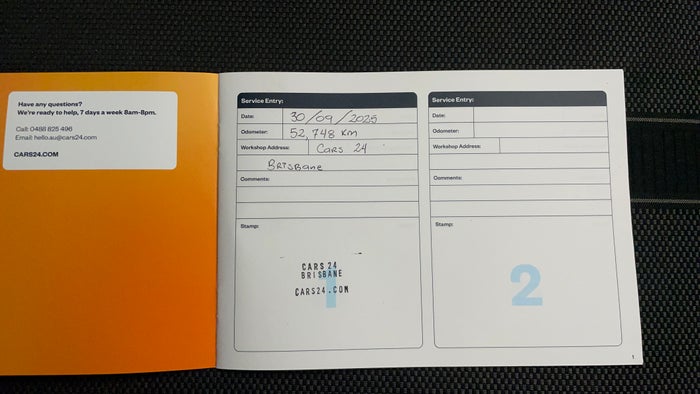 Have any questions?
We're ready to help, 7 days a week 8am-8pm.
Call: 0488 825 496
Email: hello.au@cars24.com
CARS24.COM
Service Entry:
Date: 30/09/2025
Odometer: 52,748 Km
Workshop Address: Cars 24
Brisbane
Comments:
Stamp:
CARS 24
BRISBANE
CARS24.COM
1
Service Entry:
Date:
Odometer:
Workshop Address:
Comments:
Stamp:
2
1